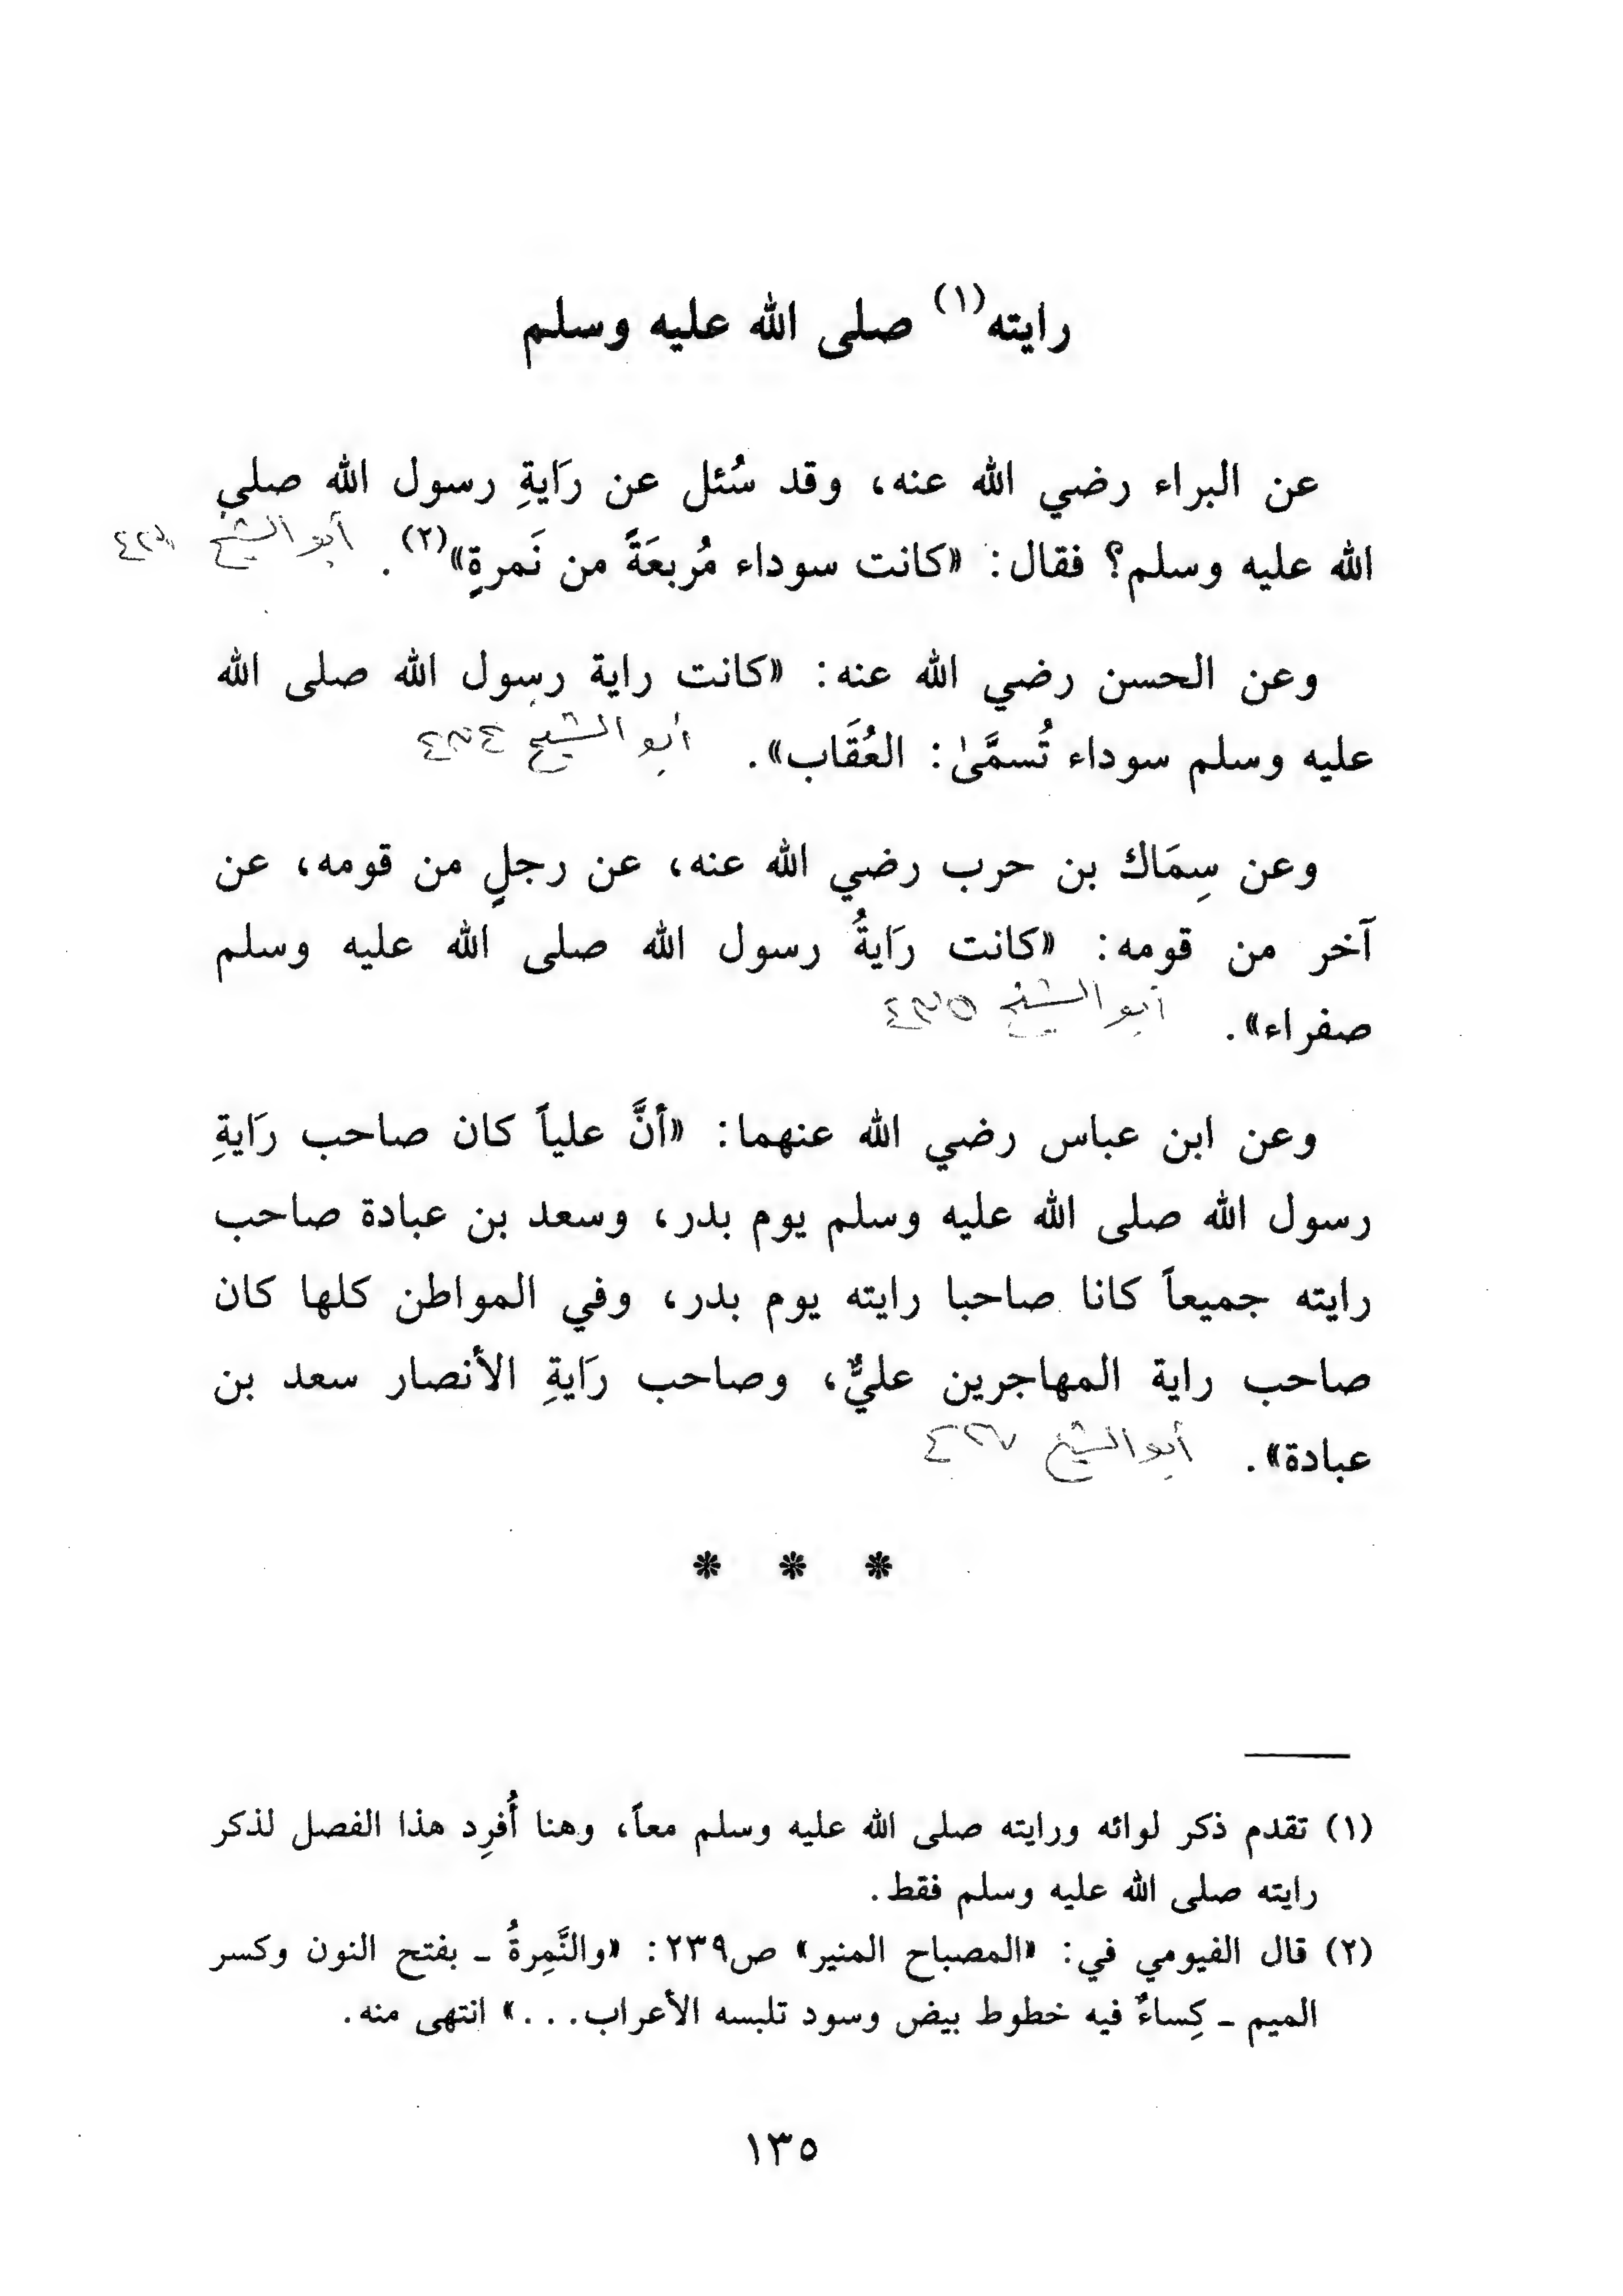 رايته(١) صلى الله عليه وسلم
عن البراء رضي الله عنه، وقد سُئل عن رَايةِ رسول الله صلى
الله عليه وسلم؟ فقال: «كانت سوداء مُربعَةً من نَمرةٍ»(٢). أبو الشيخ
وعن الحسن رضي الله عنه: «كانت راية رسول الله صلى الله
عليه وسلم سوداء تُسمَّىٰ: العُقَاب». أبو الشيخ
وعن سِمَاك بن حرب رضي الله عنه، عن رجلٍ من قومه، عن
آخر من قومه: «كانت رَايةُ رسول الله صلى الله عليه وسلم
صفراء». أبو الشيخ
وعن ابن عباس رضي الله عنهما: «أنَّ علياً كان صاحب رَايةِ
رسول الله صلى الله عليه وسلم يوم بدر، وسعد بن عبادة صاحب
رايته جميعاً كانا صاحبا رايته يوم بدر، وفي المواطن كلها كان
صاحب راية المهاجرين عليٌّ، وصاحب رَايةِ الأنصار سعد بن
عبادة». أبو الشيخ
* * *
(١) تقدم ذكر لوائه ورايته صلى الله عليه وسلم معاً، وهنا أُفرِد هذا الفصل لذكر
رايته صلى الله عليه وسلم فقط.
(٢) قال الفيومي في: «المصباح المنير» ص٢٣٩: «والنَّمِرةُ ـ بفتح النون وكسر
الميم ـ كِساءٌ فيه خطوط بيض وسود تلبسه الأعراب...» انتهى منه.
١٣٥